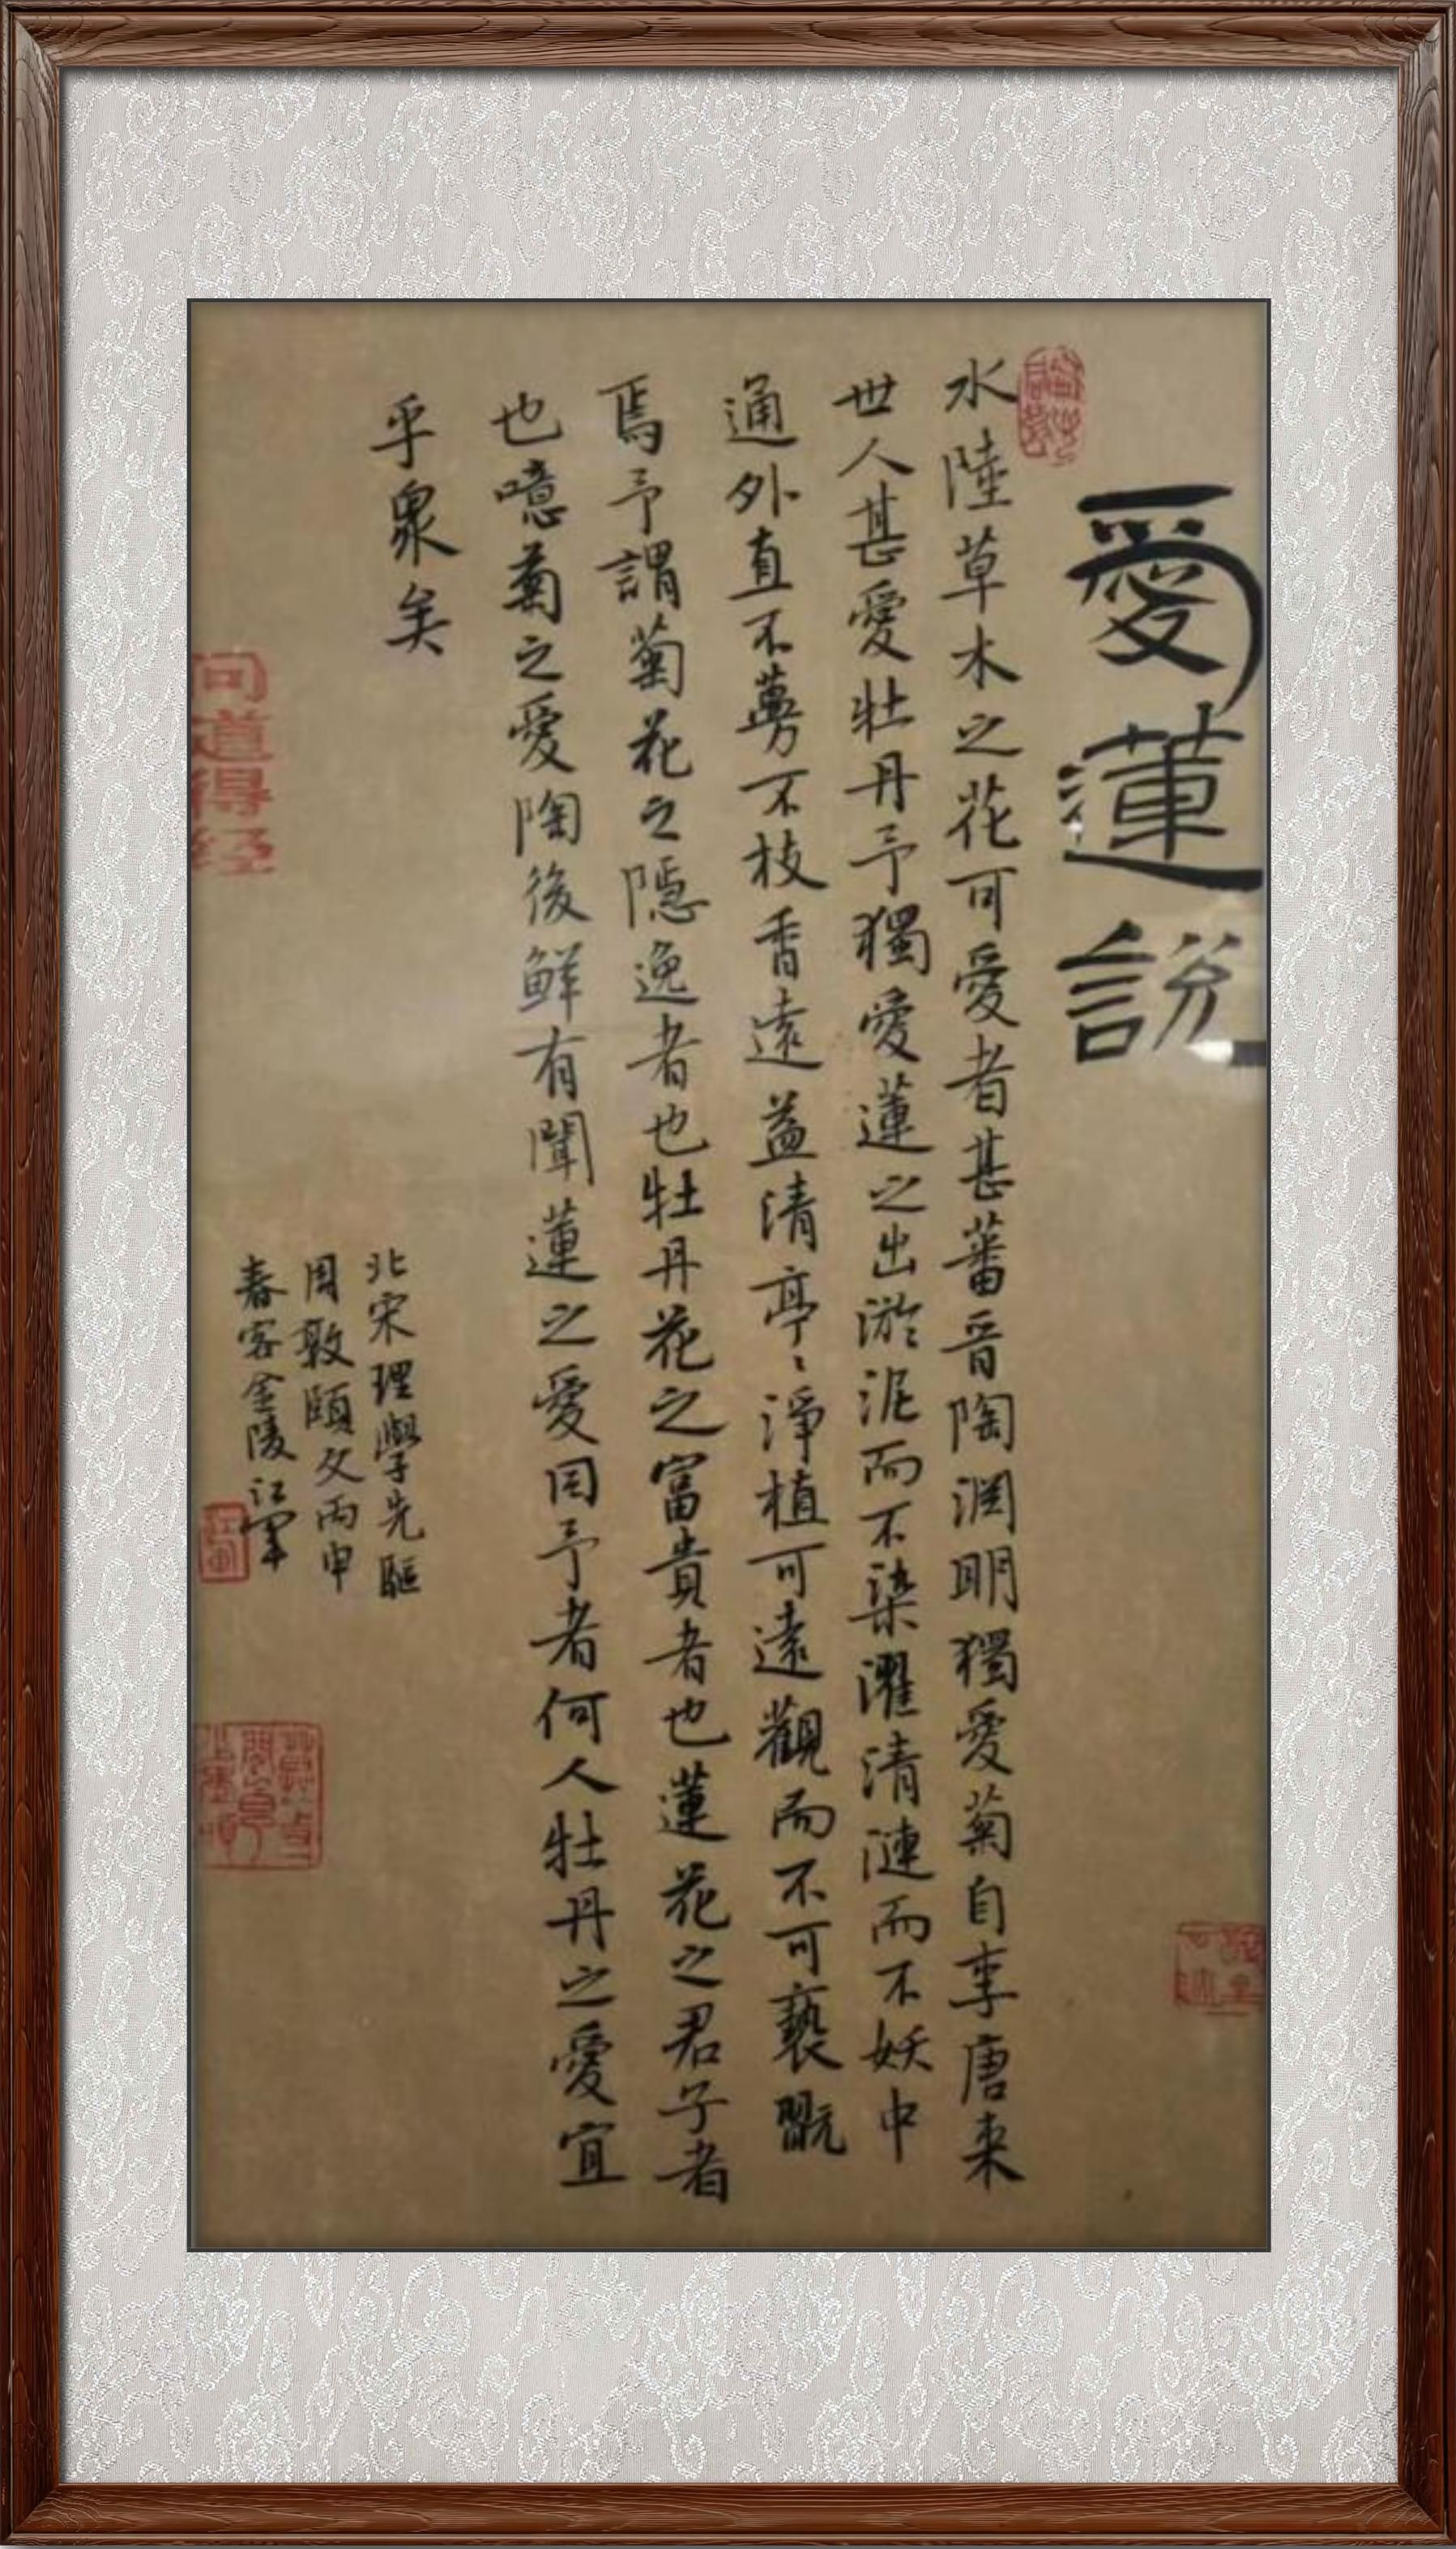 愛蓮說
水陸草木之花可愛者甚蕃晉陶渊明獨愛菊自李唐来
世人甚愛牡丹予獨愛蓮之出淤泥而不染濯清漣而不妖中
通外直不蔓不枝香遠益清亭〻淨植可遠觀而不可褻翫
焉予謂菊花之隱逸者也牡丹花之富貴者也蓮花之君子者
也噫菊之愛陶後鮮有聞蓮之愛同予者何人牡丹之愛宜
乎衆矣
北宋理學先驅
周敦頤文丙申
春客金陵江軍
道得经